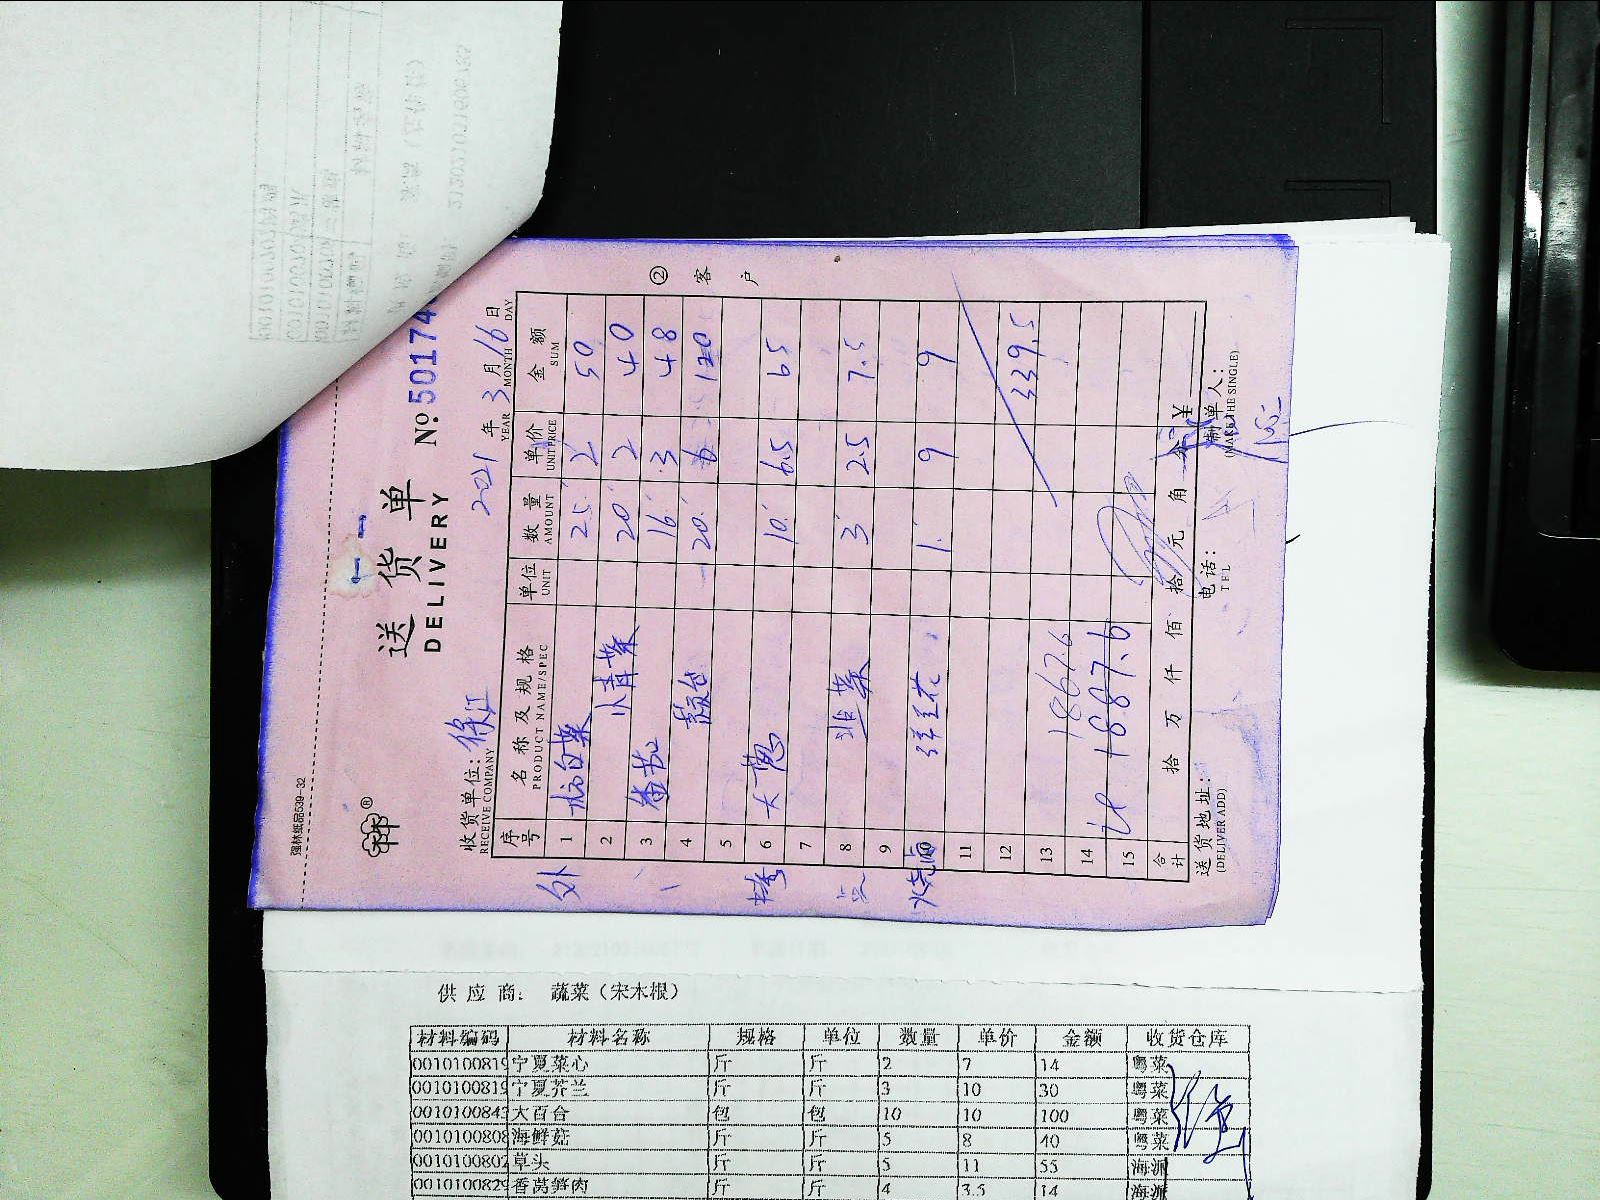 强林纸品539-32
送货单
DELIVERY
№ 50174
收货单位：徐江
RECEIVE COMPANY
2021年3月16日
YEAR MONTH DAY
序号 名称及规格 单位 数量 单价 金额
PRODUCT NAME/SPEC UNIT AMOUNT UNIT PRICE SUM
外 1 杭白菜 25 2 50
2 小青菜 20 2 40
3 番茄 16 3 48
4 20 6 120
5
6 大葱 10 6.5 65
7
8 韭菜 3 2.5 7.5
9
烧卤 10 西兰花 1 9 9
11
12 339.5
13 1867.6
14
15 1887.6
合计 拾 万 仟 佰 拾 元 角 分 ¥
送货地址： 电话： 制单人：
(DELIVER ADD) TEL (MAKE THE SINGLE)
② 客户
供应商： 蔬菜（宋木根）
材料编码 材料名称 规格 单位 数量 单价 金额 收货仓库
0010100819 宁夏菜心 斤 斤 2 7 14 粤菜
0010100819 宁夏芥兰 斤 斤 3 10 30 粤菜
0010100843 大百合 包 包 10 10 100 粤菜
0010100808 海鲜菇 斤 斤 5 8 40 粤菜
0010100802 草头 斤 斤 5 11 55 海派
0010100829 香莴笋肉 斤 斤 4 3.5 14 海派